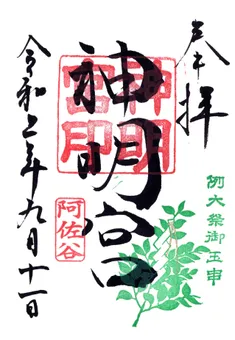 奉拝
例大祭御玉串
神明宮
神明宮印
阿佐谷
令和二年九月十一日